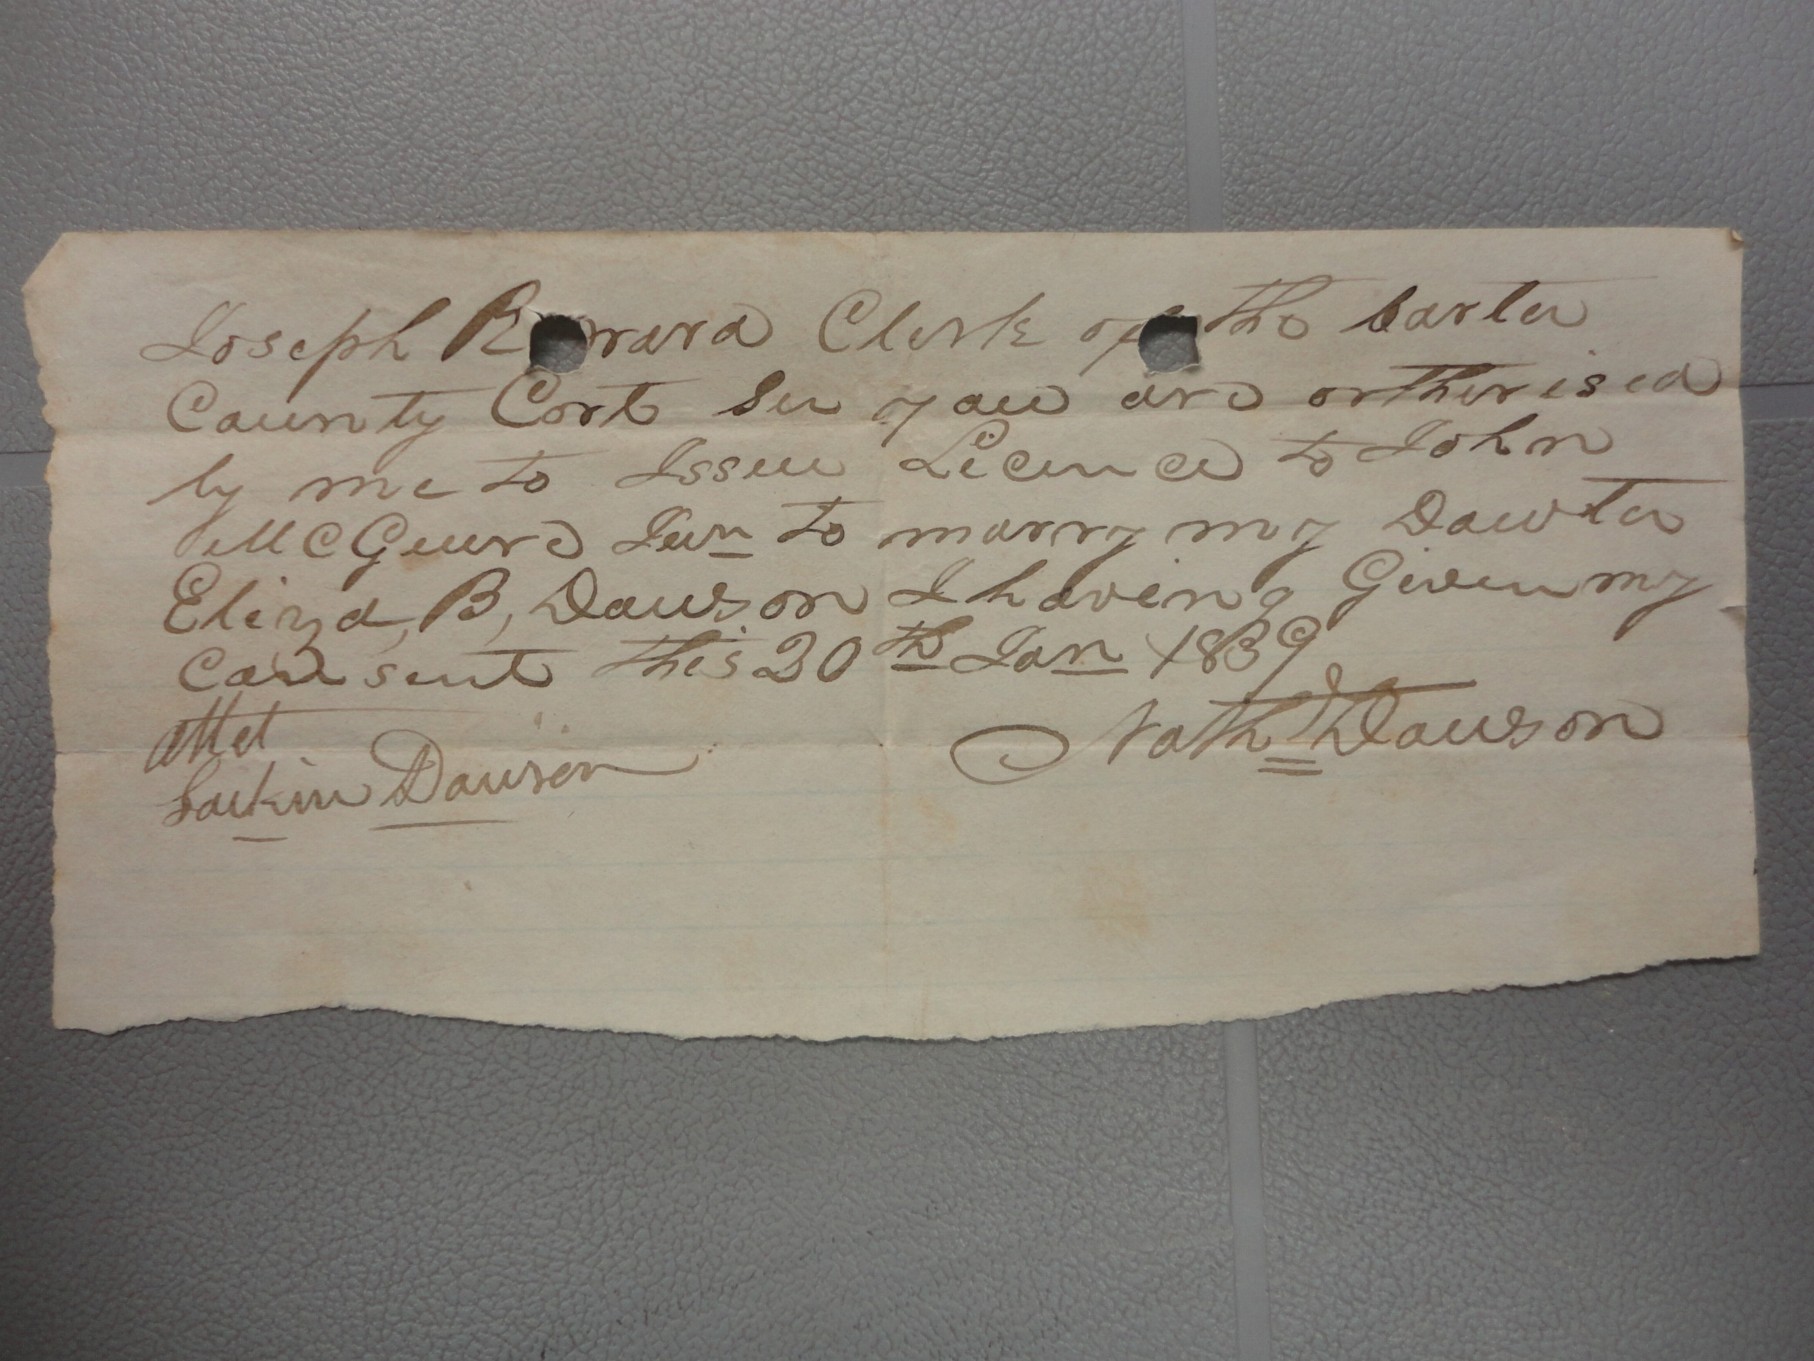 Joseph R rard Clerk of the Carter
County Cort Ser you are ortherised
by me to Issue Licence to John
McGuure Jun to marry my Dawter
Eliza, B, Dawson I having Given my
Consent this 20th Jan 1839
Attest
Larkin Dawson
Nathl Dawson